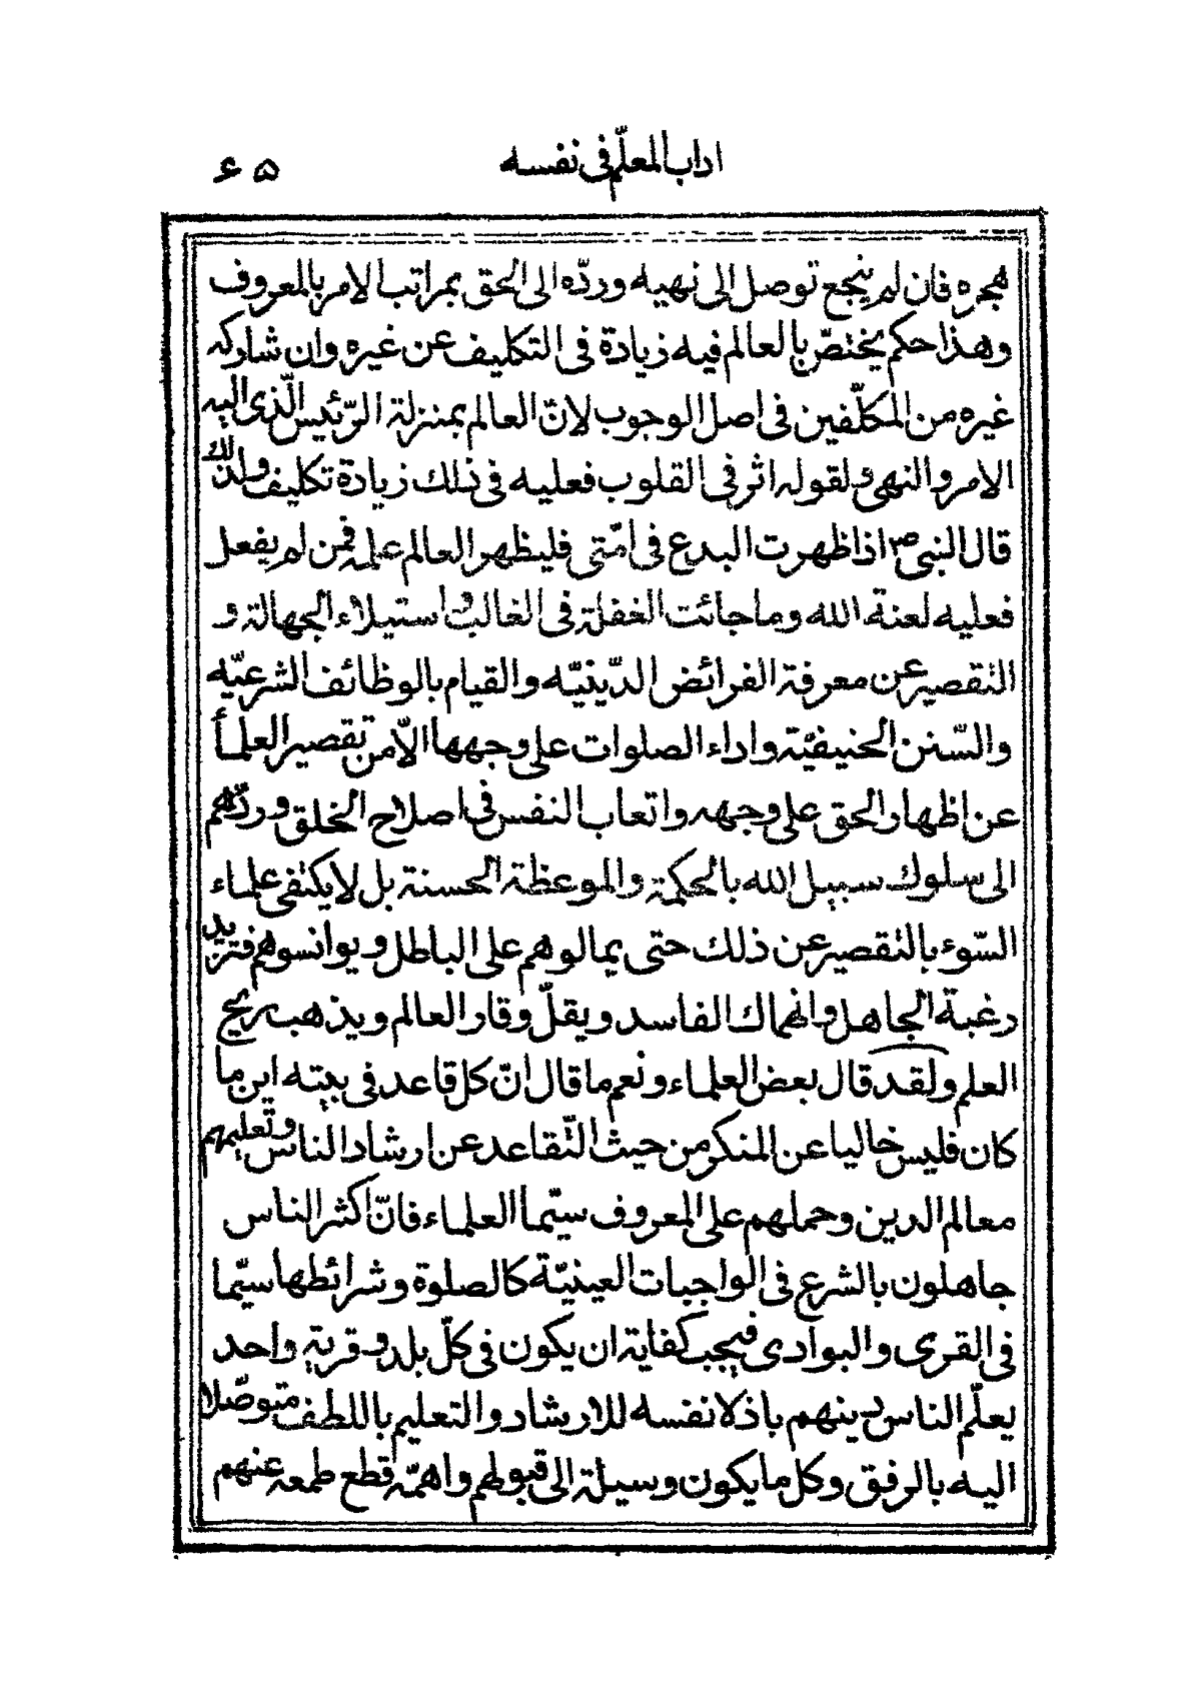 اداب المعلّم فى نفسه
۶۵
هجره فان لم ينجع توصل الى نهيه وردّه الى الحق بمراتب الامر بالمعروف
وهذا حكم يختصّ بالعالم فيه زيادة فى التكليف عن غيره وان شاركه
غيره من المكلّفين فى اصل الوجوب لانّ العالم بمنزلة الرّئيس الّذى اليه
الامر والنهى ولقوله اثر فى القلوب فعليه فى ذلك زيادة تكليف ولذلك
قال النبى ص اذا ظهرت البدع فى امّتى فليظهر العالم علمه فمن لم يفعل
فعليه لعنة الله وما جائت الغفلة فى الغالب واستيلاء الجهالة و
التقصير عن معرفة الفرائض الدّينيّه والقيام بالوظائف الشرعيّه
والسّنن الحنيفيّة واداء الصلوات على وجهها الاّ من تقصير العلمأ
عن اظهار الحق على وجهه واتعاب النفس فى اصلاح الخلق وردّهم
الى سلوك سبيل الله بالحكمة والموعظة الحسنة بل لا يكتفى علماء
السّوء بالتقصير عن ذلك حتى يمالوهم على الباطل ويوانسوهم فتزيد
رغبة الجاهل وانهماك الفاسد ويقلّ وقار العالم ويذهب ريح
العلم ولقد قال بعض العلماء ونعم ما قال انّ كل قاعد فى بيته اين ما
كان فليس خاليا عن المنكر من حيث التّقاعد عن ارشاد الناس وتعليمهم
معالم الدين وحملهم على المعروف سيّما العلماء فانّ اكثر الناس
جاهلون بالشرع فى الواجبات العينيّة كالصلوة وشرائطها سيّما
فى القرى والبوادى فيجب كفاية ان يكون فى كلّ بلد وقرية واحد
يعلّم الناس دينهم باذلا نفسه للارشاد والتعليم باللطف متوصّلا
اليه بالرفق وكل ما يكون وسيلة الى قبولهم واهمّه قطع طمعه عنهم